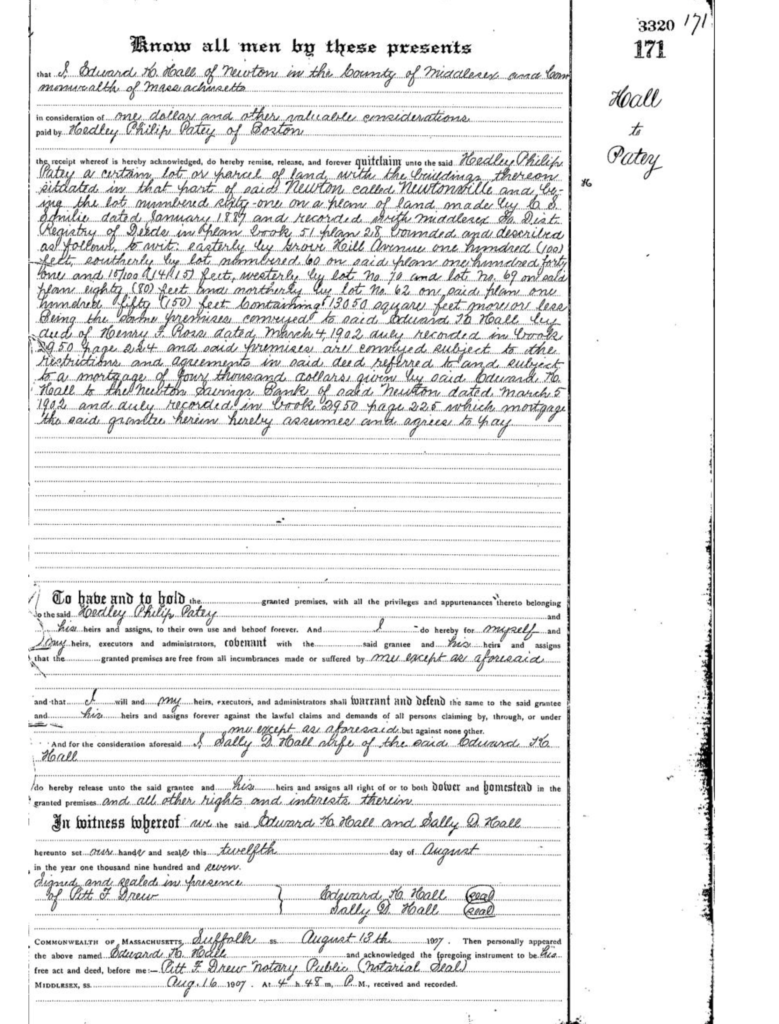 3320 171
171
Hall
to
Patey
Know all men by these presents
that I Edward H. Hall of Newton in the County of Middlesex and Com
monwealth of Massachusetts
in consideration of one dollar and other valuable considerations
paid by Hedley Philip Patey of Boston
the receipt whereof is hereby acknowledged, do hereby remise, release, and forever quitclaim unto the said Hedley Philip
Patey a certain lot or parcel of land, with the buildings thereon
situated in that part of said Newton called Newtonville and be-
ing the lot numbered sixty-one on a plan of land made by E. S.
Smilie dated January 1887 and recorded with Middlesex So. Dist.
Registry of Deeds in plan book 51 plan 28 bounded and described
as follows, to wit: easterly by Grove Hill Avenue one hundred (100)
feet, southerly by lot numbered 60 on said plan one hundred forty
one and 15/100 (141.15) feet, westerly by lot No. 70 and lot No. 69 on said
plan eighty (80) feet and northerly by lot No. 62 on said plan one
hundred fifty (150) feet. Containing 13050 square feet more or less
Being the same premises conveyed to said Edward H. Hall by
deed of Henry F. Ross dated March 4, 1902 duly recorded in book
2950 page 224 and said premises are conveyed subject to the
restrictions and agreements in said deed referred to and subject
to a mortgage of four thousand dollars given by said Edward H.
Hall to the Newton Savings Bank of said Newton dated March 5
1902 and duly recorded in book 2950 page 225 which mortgage
the said grantee herein hereby assumes and agrees to pay.
To have and to hold the granted premises, with all the privileges and appurtenances thereto belonging
to the said Hedley Philip Patey and
his heirs and assigns, to their own use and behoof forever. And I do hereby for myself and
my heirs, executors and administrators, covenant with the said grantee and his heirs and assigns
that the granted premises are free from all incumbrances made or suffered by me except as aforesaid
and that I will and my heirs, executors, and administrators shall warrant and defend the same to the said grantee
and his heirs and assigns forever against the lawful claims and demands of all persons claiming by, through, or under
me except as aforesaid but against none other.
And for the consideration aforesaid I, Sally D. Hall wife of the said Edward H.
Hall
do hereby release unto the said grantee and his heirs and assigns all right of or to both dower and homestead in the
granted premises and all other rights and interests therein.
In witness whereof we the said Edward H. Hall and Sally D. Hall
hereunto set our hands and seals this twelfth day of August
in the year one thousand nine hundred and seven.
Signed and sealed in presence
of Pitt F. Drew } Edward H. Hall (seal)
} Sally D. Hall (seal)
COMMONWEALTH OF MASSACHUSETTS, Suffolk ss. August 13th 1907. Then personally appeared
the above named Edward H. Hall and acknowledged the foregoing instrument to be his
free act and deed, before me:— Pitt F. Drew Notary Public (Notarial Seal)
MIDDLESEX, ss. Aug. 16 1907. At 4 h 48 m, P. M., received and recorded.